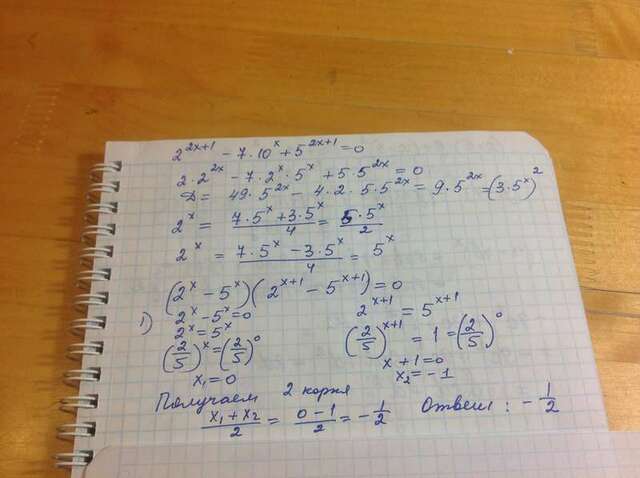 2^{2x+1} - 7·10^x + 5^{2x+1} = 0
2·2^{2x} - 7·2^x·5^x + 5·5^{2x} = 0
D = 49·5^{2x} - 4·2·5·5^{2x} = 9·5^{2x} = (3·5^x)^2
2^x = (7·5^x + 3·5^x)/4 = 5·5^x/2
2^x = (7·5^x - 3·5^x)/4 = 5^x
(2^x - 5^x)(2^{x+1} - 5^{x+1}) = 0
1) 2^x - 5^x = 0
2^x = 5^x
(2/5)^x = (2/5)^0
x₁ = 0
2^{x+1} = 5^{x+1}
(2/5)^{x+1} = 1 = (2/5)^0
x + 1 = 0
x₂ = -1
Получаем 2 корня
(x₁ + x₂)/2 = (0 - 1)/2 = -1/2 Ответ: -1/2